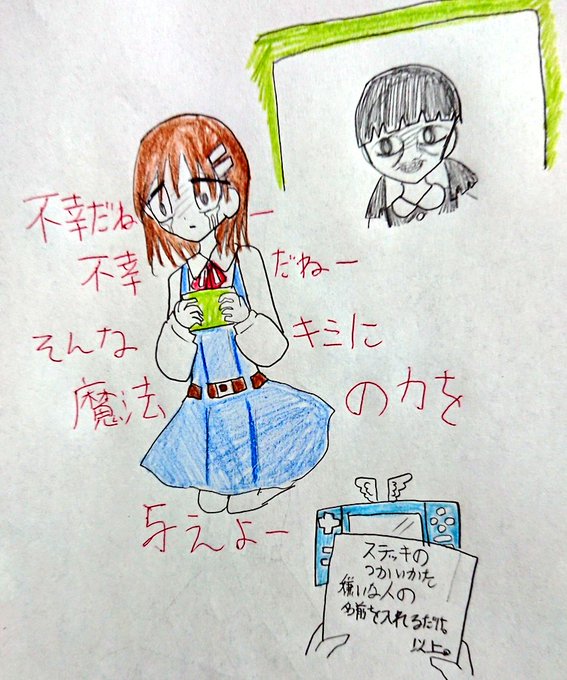 不幸だねー
不幸だねー
そんなキミに
魔法の力を
与えよー
ステッキの
つかいかた
嫌いな人の
名前を入れるだけ。
以上。